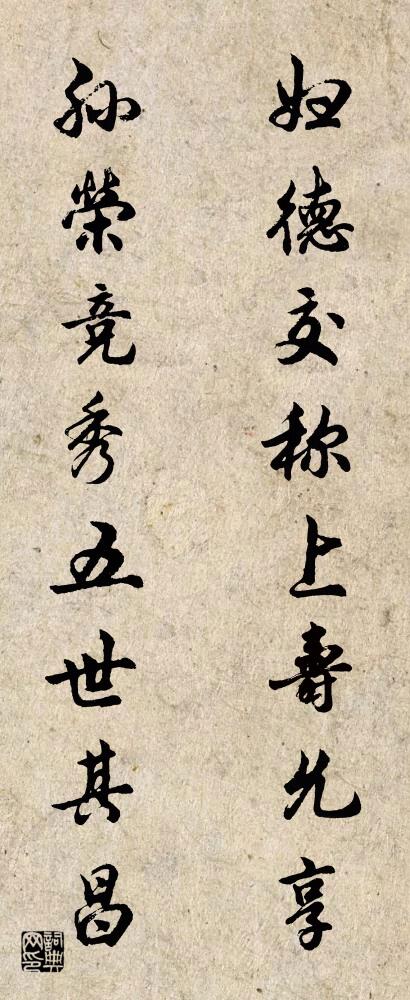 妇德交称上壽允享
孙榮竞秀五世其昌
詞典网印